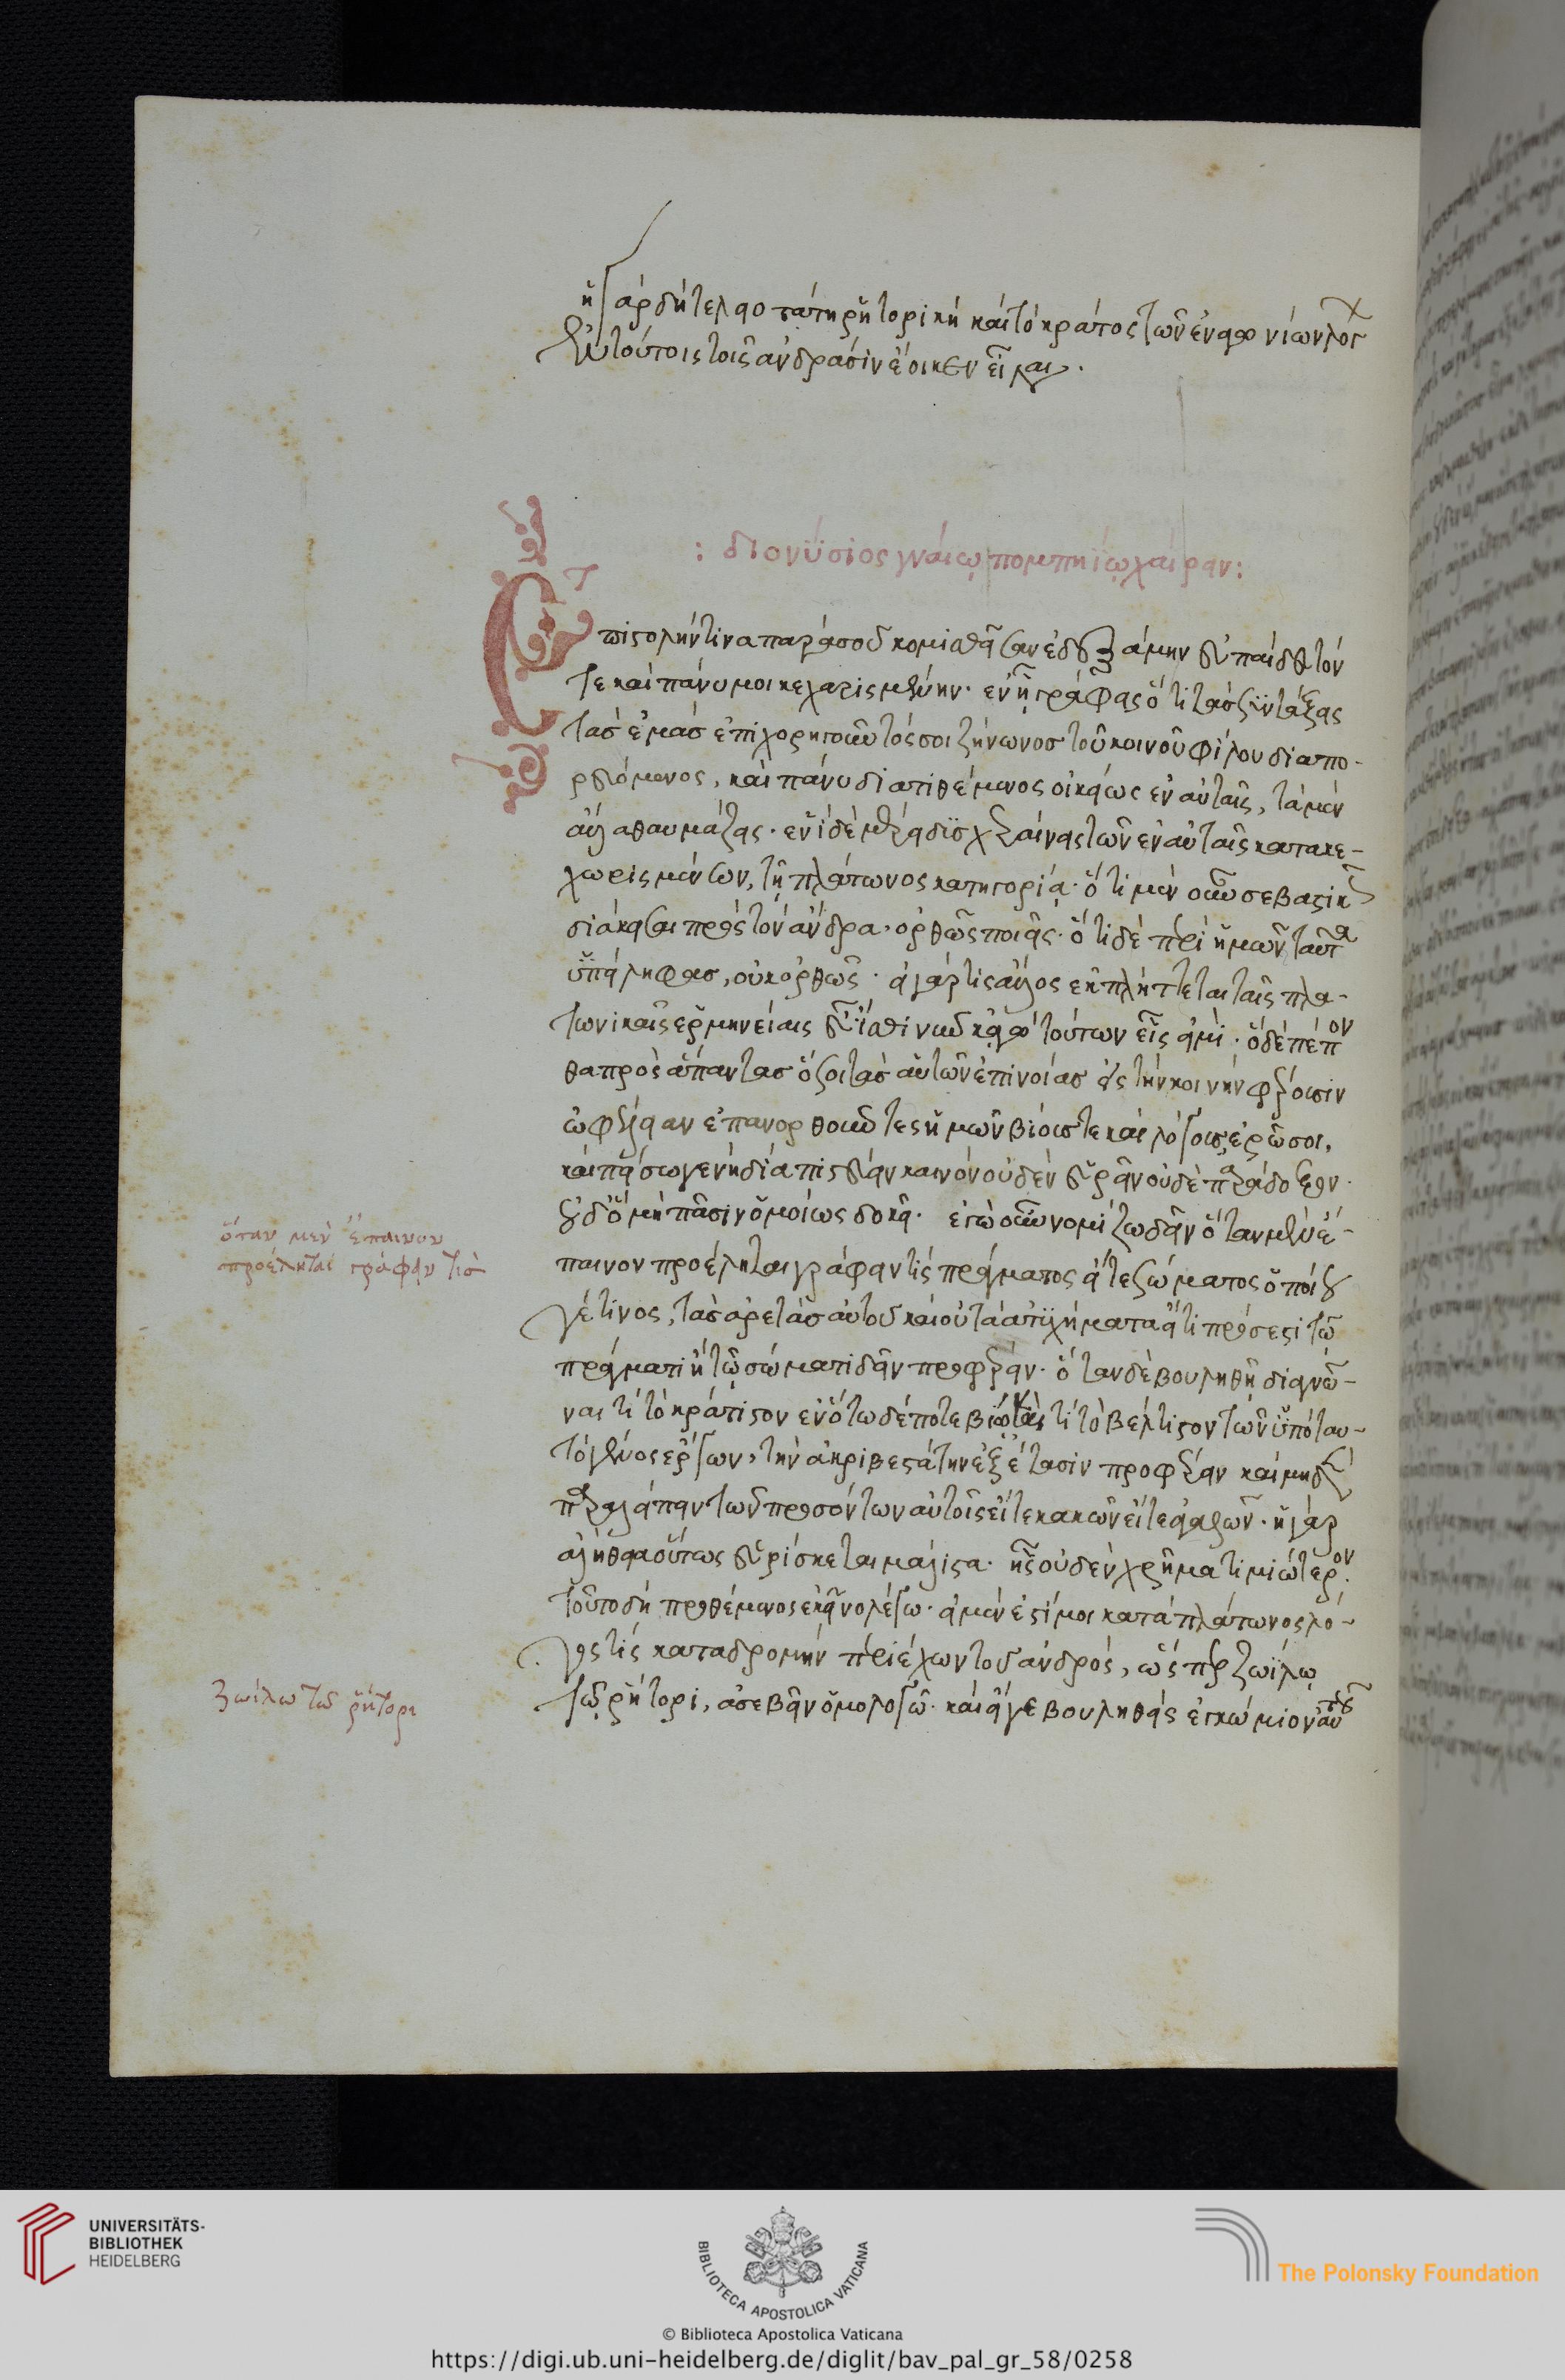 ἡ γὰρ δὴ τελειοτάτη ῥητορικὴ καὶ τὸ κράτος τῶν ἐναγωνίων λόγ
ἐν τούτοις τοῖς ἀνδράσιν ἔοικεν εἶναι.
: διονύσιος γναίῳ πομπηίῳ χαίρειν:
Ἐπιστολήν τινα παρὰ σοῦ κομισθεῖσαν ἐδεξάμην εὐπαίδευτόν
τε καὶ πάνυ μοι κεχαρισμένην· ἐν ᾗ γράφεις ὅτι τὰς συντάξεις
τὰς ἐμὰς ἐπιχορηγοῦντός σοι ζήνωνος τοῦ κοινοῦ φίλου διαπο-
ρευόμενος, καὶ πάνυ διατιθέμενος οἰκείως ἐν αὐταῖς, τὰ μὲν
ἄλλα θαυμάζεις· ἑνὶ δὲ μέρει δυσχεραίνεις τῶν ἐν αὐταῖς κατακε-
χωρισμένων, τῇ πλάτωνος κατηγορίᾳ· ὅτι μὲν οὖν σεβαστικῶς
διάκεισαι πρὸς τὸν ἄνδρα, ὀρθῶς ποιεῖς· ὅτι δὲ περὶ ἡμῶν ταῦτα
ὑπείληφας, οὐκ ὀρθῶς· εἰ γάρ τις ἄλλος ἐκπλήττεται ταῖς πλα-
τωνικαῖς ἑρμηνείαις εὖ ἴσθι νῦν κἀγὼ τούτων εἷς εἰμι· ὃ δὲ πέπον
θα πρὸς ἅπαντας ὅσοι τὰς αὑτῶν ἐπινοίας εἰς τὴν κοινὴν φέρουσιν
ὠφέλειαν ἐπανορθοῦντες ἡμῶν βίους τε καὶ λόγους, ἐρῶ σοι,
καὶ πείσω γε νὴ δία πιστεύειν καινὸν οὐδὲν εὑρεῖν οὐδὲ παράδοξον
οὐδ' ὃ μὴ πᾶσιν ὁμοίως δοκεῖ· ἐγὼ οὖν νομίζω δεῖν ὅταν μὲν ἔ-
παινον προέληται γράφειν τις πράγματος εἴτε σώματος ὁποίου
γέ τινος, τὰς ἀρετὰς αὐτοῦ καὶ οὐ τὰ ἀτυχήματα εἴ τι πρόσεστι τῷ
πράγματι ἢ τῷ σώματι δεῖν προφέρειν· ὅταν δὲ βουληθῇ διαγνῶ-
ναι τί τὸ κράτιστον ἐν ὅτῳ δέποτε βίῳ καὶ τί τὸ βέλτιστον τῶν ὑπὸ ταυ-
τὸ γένος ἔργων, τὴν ἀκριβεστάτην ἐξέτασιν προσφέρειν καὶ μηδὲν
παραλείπειν τῶν προσόντων αὐτοῖς εἴτε κακῶν εἴτε ἀγαθῶν· ἡ γὰρ
ἀλήθεια οὕτως εὑρίσκεται μάλιστα· ἧς οὐδὲν χρῆμα τιμιώτερον·
τοῦτο δὴ προθέμενος ἐκεῖνο λέγω· εἰ μέν ἐστί μοι κατὰ πλάτωνος λό-
γος τις καταδρομὴν περιέχων τοῦ ἀνδρός, ὥσπερ ζωίλῳ
τῷ ῥήτορι, ἀσεβεῖν ὁμολογῶ· καὶ εἴ γε βουληθεὶς ἐγκώμιον αὐτοῦ
ὅταν μὲν ἔπαινον
προέληται γράφειν τις
ζωίλῳ τῷ ῥήτορι
UNIVERSITÄTS-
BIBLIOTHEK
HEIDELBERG
BIBLIOTECA APOSTOLICA VATICANA
The Polonsky Foundation
© Biblioteca Apostolica Vaticana
https://digi.ub.uni-heidelberg.de/diglit/bav_pal_gr_58/0258